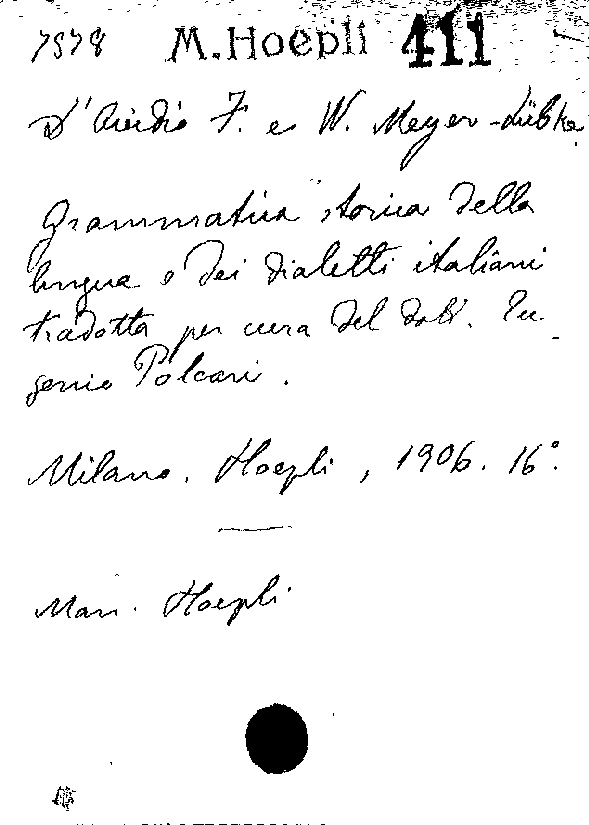 7578 M. Hoepli 411
D'Ovidio F. e W. Meyer-Lübke
Grammatica storica della
lingua e dei dialetti italiani
tradotta per cura del dott. Eu-
genio Polcari.
Milano. Hoepli, 1906. 16°.
Man. Hoepli